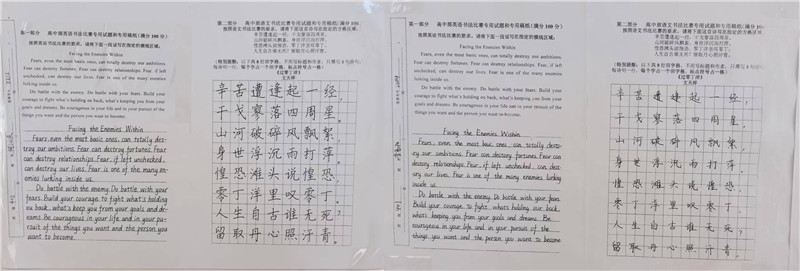 第一部分 高中部英语书法比赛专用试题和专用稿纸(满分100分)
按照英语书法比赛的要求,请将下面一段话写在指定的横线区域:
Facing the Enemies Within
Fears, even the most basic ones, can totally destroy our ambitions.
Fear can destroy fortunes. Fear can destroy relationships. Fear, if left
unchecked, can destroy our lives. Fear is one of the many enemies
lurking inside us.
Do battle with the enemy. Do battle with your fears. Build your
courage to fight what's holding you back, what's keeping you from your
goals and dreams. Be courageous in your life and in your pursuit of the
things you want and the person you want to become.
Facing the Enemies Within
Fears, even the most basic ones, can totally des-
troy our ambitions. Fear can destroy fortunes. Fear
can destroy relationships. Fear, if left unchecked,
can destroy our lives. Fear is one of the many ene-
mies lurking inside us.
Do battle with the enemy. Do battle with your
fears. Build your courage to fight what's holding y-
ou back, what's keep you from your goals and dr-
eams. Be courageous in your life and in your pur-
suit of the things you want and the person you
want to become.
第二部分 高中部语文书法比赛专用试题和专用稿纸(满分100
《过零丁洋》
文天祥
辛苦遭逢起一经,
干戈寥落四周星。
山河破碎风飘絮,
身世浮沉雨打萍。
惶恐滩头说惶恐,
零丁洋里叹零丁。
人生自古谁无死?
留取丹心照汗青。
第一部分 高中部英语书法比赛专用试题和专用稿纸(满分100分)
按照英语书法比赛的要求,请将下面一段话写在指定的横线区域:
Facing the Enemies Within
Fears, even the most basic ones, can totally destroy our ambitions.
Fear can destroy fortunes. Fear can destroy relationships. Fear, if left
unchecked, can destroy our lives. Fear is one of the many enemies
lurking inside us.
Do battle with the enemy. Do battle with your fears. Build your
courage to fight what's holding you back, what's keeping you from your
goals and dreams. Be courageous in your life and in your pursuit of the
things you want and the person you want to become.
Facing the Enemies Within
Fears, even the most basic ones, can totally destro-
y our ambitions. Fear can destroy fortunes. Fear can
destroy relationships. Fear, if left unchecked, can des-
troy our lives. Fear is one of the many enemies lurking
inside us.
Do battle with the enemy. Do battle with your fears.
Build your courage, to fight, what's holding our back,
what's keeping you from your goals and dreams. Be
courageous in your life and in your pursuit of the
things you want and the person you want to become
第二部分 高中部语文书法比赛专用试题和专用稿纸(满分10
《过零丁洋》
文天祥
辛苦遭逢起一经,
干戈寥落四周星。
山河破碎风飘絮,
身世浮沉雨打萍。
惶恐滩头说惶恐,
零丁洋里叹零丁。
人生自古谁无死,
留取丹心照汗青。